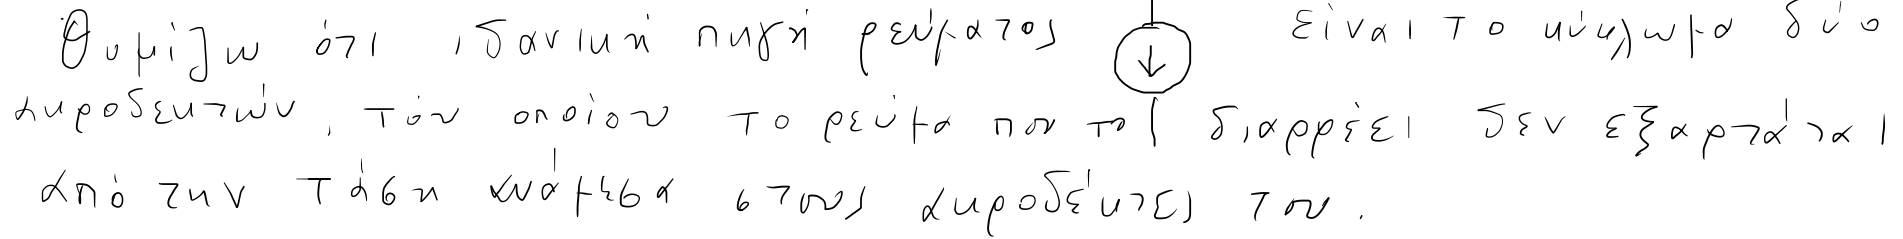 Θυμίζω ότι ιδανική πηγή ρεύματος είναι το κύκλωμα δύο
ακροδεκτών, τού οποίου το ρεύμα που το διαρρέει δεν εξαρτάται
από την τάση ανάμεσα στους ακροδέκτες του.